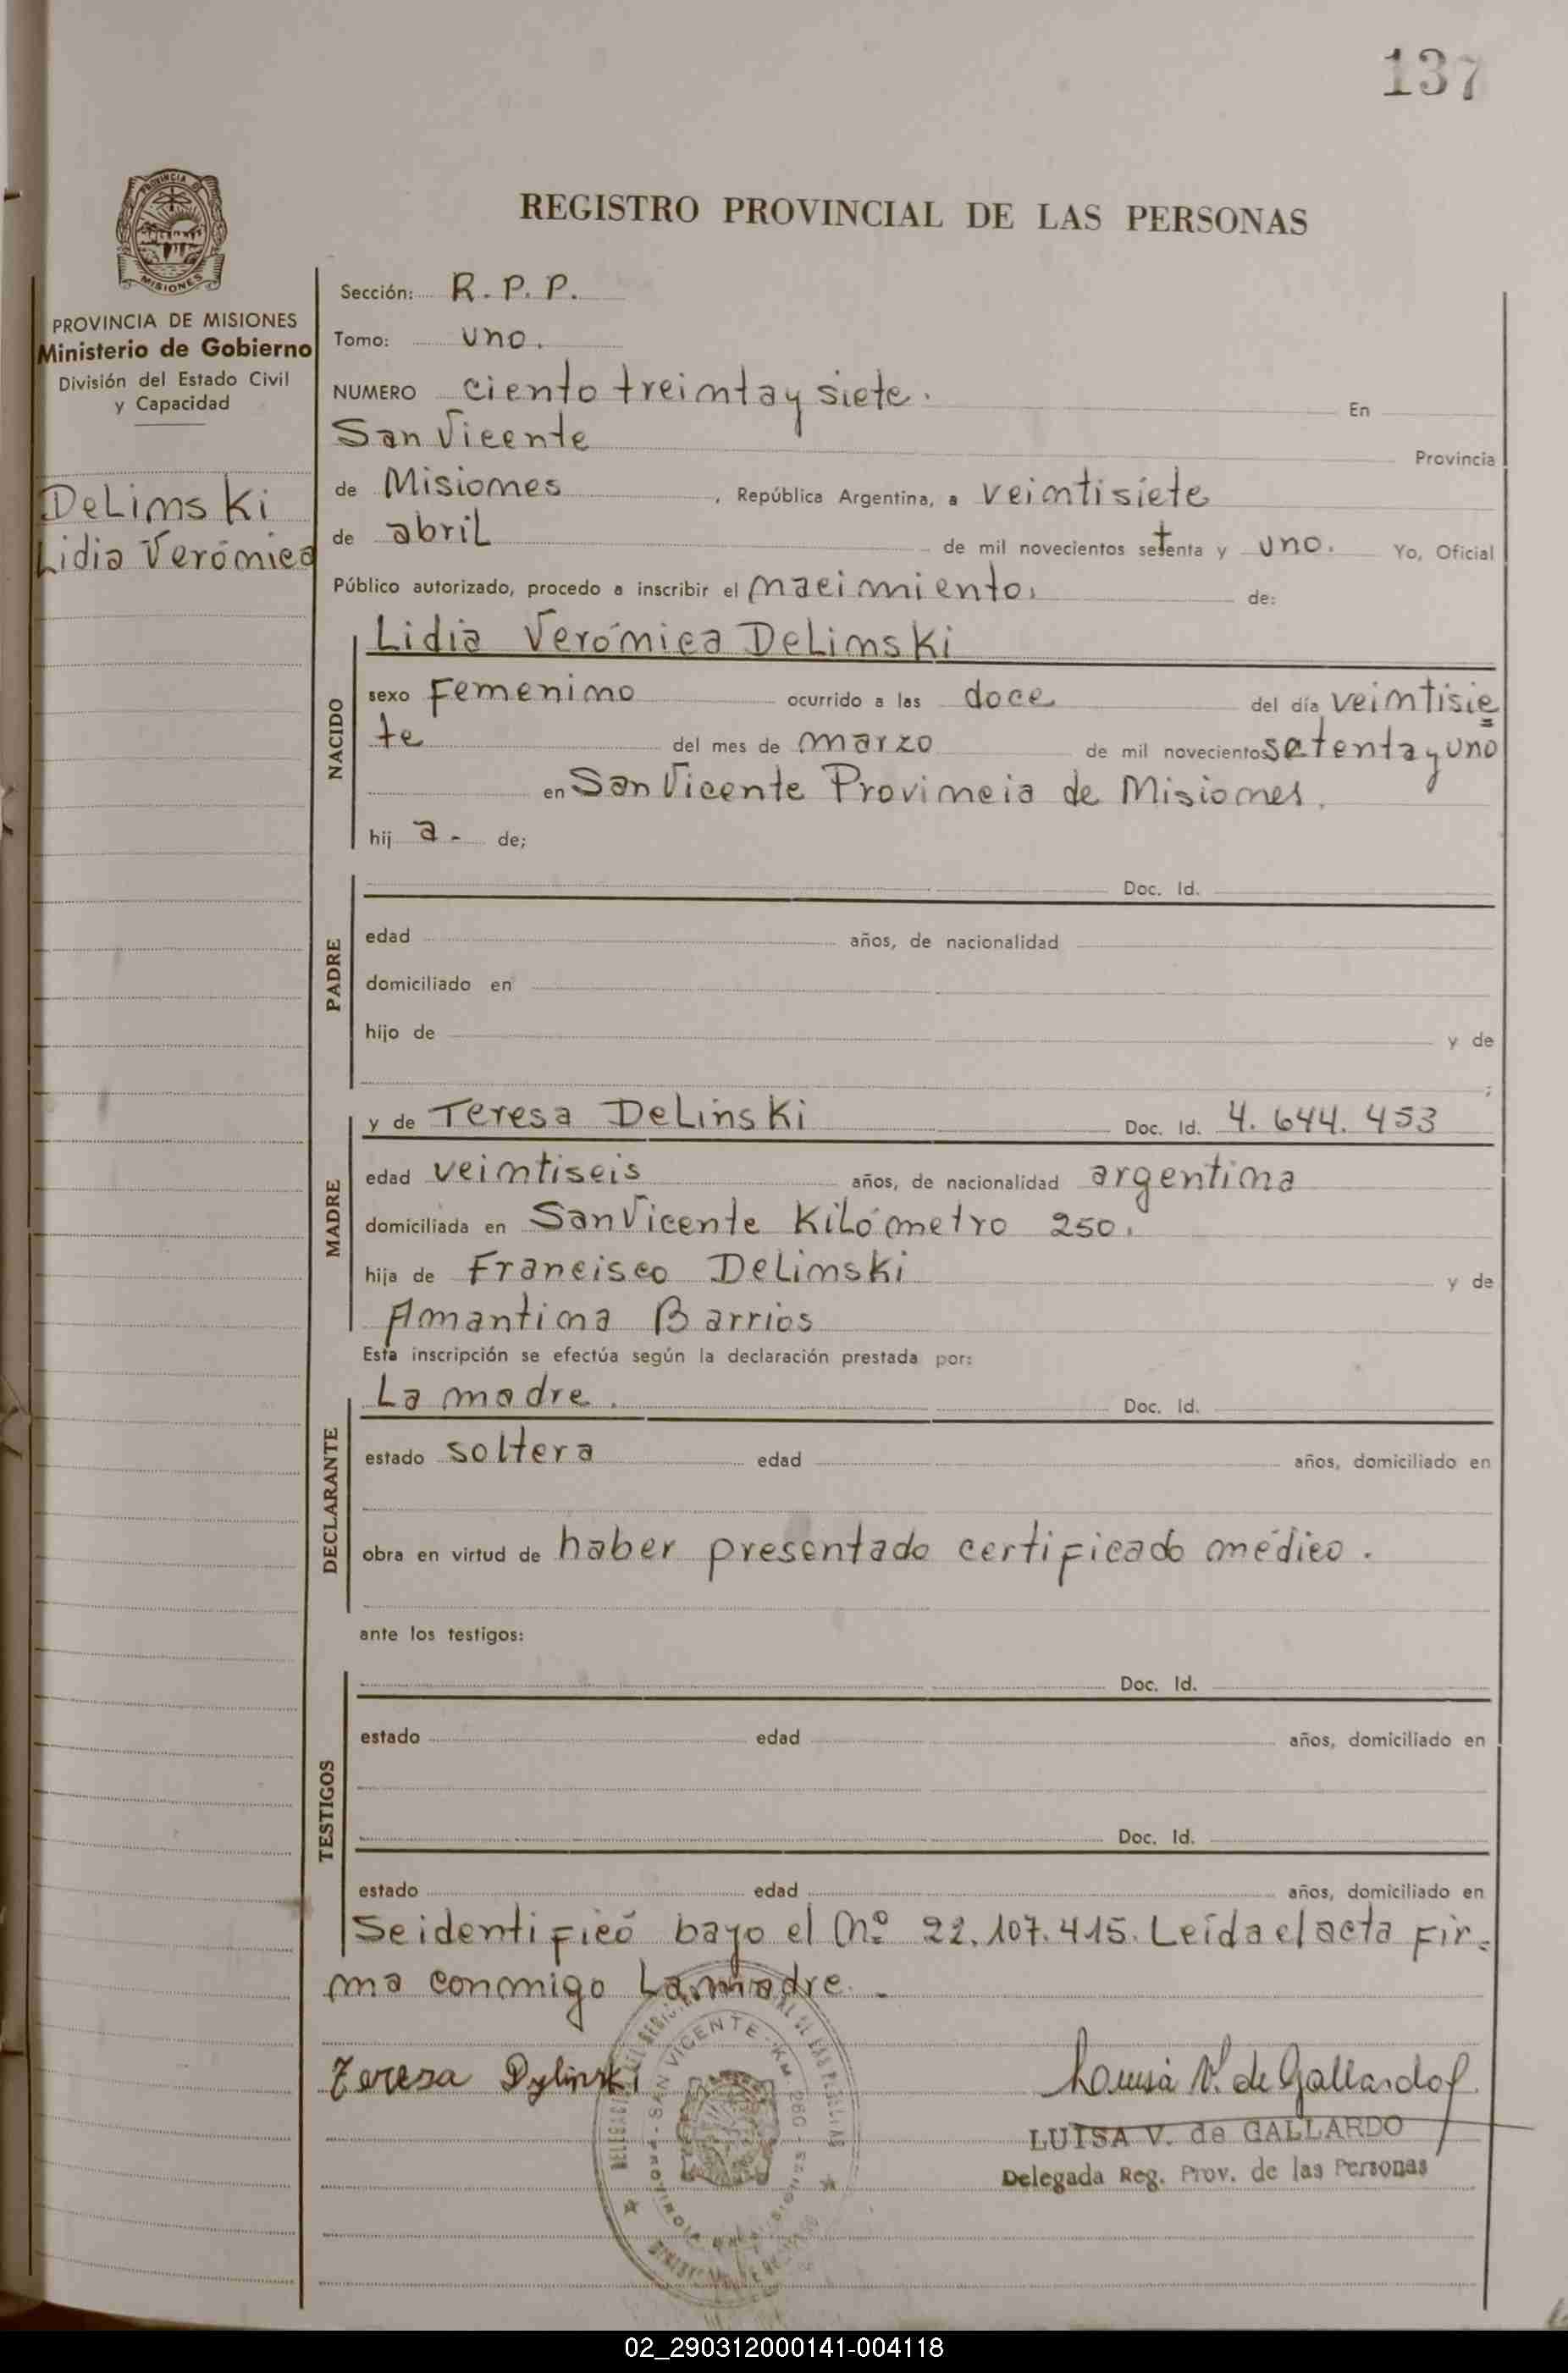 137
REGISTRO PROVINCIAL DE LAS PERSONAS
PROVINCIA DE MISIONES
Ministerio de Gobierno
División del Estado Civil
y Capacidad
Delinski
Lidia Verónica
Sección: R. P. P.
Tomo: uno.
NUMERO ciento treinta y siete. En
San Vicente Provincia
de Misiones, República Argentina, a veintisiete
de abril de mil novecientos setenta y uno. Yo, Oficial
Público autorizado, procedo a inscribir el nacimiento. de:
NACIDO
Lidia Verónica Delinski
sexo Femenino ocurrido a las doce del día veintisie
te del mes de marzo de mil novecientos setenta y uno
en San Vicente Provincia de Misiones.
hij a.- de;
PADRE
Doc. Id.
edad años, de nacionalidad
domiciliado en
hijo de y de
;
MADRE
y de Teresa Delinski Doc. Id. 4.644.453
edad veintiseis años, de nacionalidad argentina
domiciliada en San Vicente Kilómetro 250.
hija de Francisco Delinski y de
Amantina Barrios
Esta inscripción se efectúa según la declaración prestada por:
DECLARANTE
La madre. Doc. Id.
estado soltera edad años, domiciliado en
obra en virtud de haber presentado certificado médico.
ante los testigos:
TESTIGOS
Doc. Id.
estado edad años, domiciliado en
Doc. Id.
estado edad años, domiciliado en
Se identificó bayo el Nº 22.107.415. Leída el acta fir=
ma conmigo La madre.-
Teresa Dylinski
Louisa V. de Gallardo
LUISA V. de GALLARDO
Delegada Reg. Prov. de las Personas
SAN VICENTE - KM. 260
02_290312000141-004118